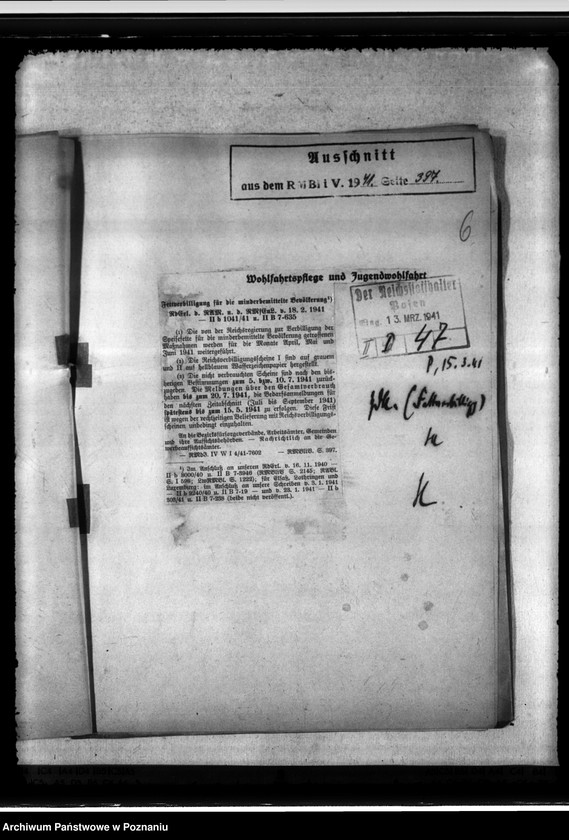 Ausschnitt
aus dem RMBliV. 1941. Seite 397.
6
Wohlfahrtspflege und Jugendwohlfahrt
Fettverbilligung für die minderbemittelte Bevölkerung¹)
RdErl. d. RAM. u. d. RMfEuL. v. 18. 2. 1941
— II b 1041/41 u. II B 7-635
(1) Die von der Reichsregierung zur Verbilligung der
Speisefette für die minderbemittelte Bevölkerung getroffenen
Maßnahmen werden für die Monate April, Mai und
Juni 1941 weitergeführt.
(2) Die Reichsverbilligungsscheine I sind auf grauem
und II auf hellblauem Wasserzeichenpapier hergestellt.
(3) Die nicht verbrauchten Scheine sind nach den bis-
herigen Bestimmungen zum 5. bzw. 10. 7. 1941 zurück-
zugeben. Die Meldungen über den Gesamtverbrauch
haben bis zum 20. 7. 1941, die Bedarfsanmeldungen für
den nächsten Zeitabschnitt (Juli bis September 1941)
spätestens bis zum 15. 5. 1941 zu erfolgen. Diese Frist
ist wegen der rechtzeitigen Belieferung mit Reichsverbilligungs-
scheinen unbedingt einzuhalten.
An die Bezirksfürsorgeverbände, Arbeitsämter, Gemeinden
und ihre Aufsichtsbehörden. — Nachrichtlich an die Ge-
werbeaufsichtsämter.
— RMdJ. IV W I 4/41-7602 — RMBliV. S. 397.
¹) Im Anschluß an unseren RdErl. v. 16. 11. 1940 —
II b 8000/40 u. II B 7-3946 (RMBliV S. 2145; RABl.
S. I 599; LwRMBl. S. 1222); für Elsaß, Lothringen und
Luxemburg: im Anschluß an unsere Schreiben v. 3. 1. 1941
— II b 9240/40 u. II B 7-19 — und v. 23. 1. 1941 — II b
305/41 u. II B 7-239 (beide nicht veröffentl.).
Der Reichsstatthalter
Posen
Eing. 13. MRZ. 1941
I D 47
P, 15.3.41
(Fettverbilligg)
Archiwum Państwowe w Poznaniu